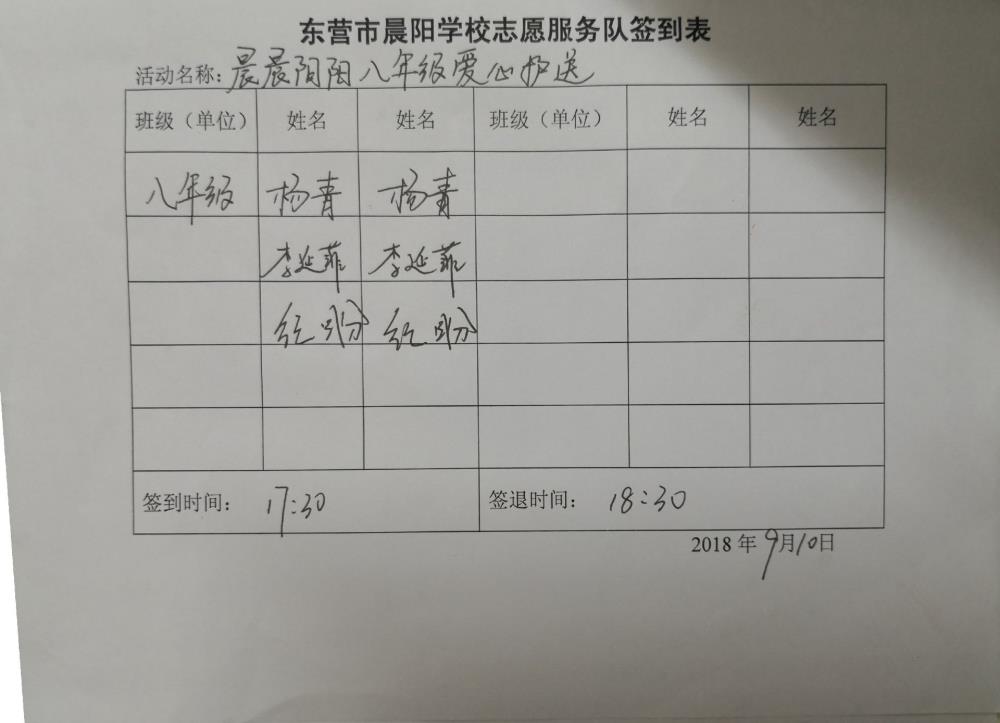 东营市晨阳学校志愿服务队签到表
活动名称：晨晨阳阳八年级爱心护送
班级（单位） 姓名 姓名 班级（单位） 姓名 姓名
八年级 杨青 杨青
李延菲 李延菲
签到时间： 17:30 签退时间： 18:30
2018年9月10日